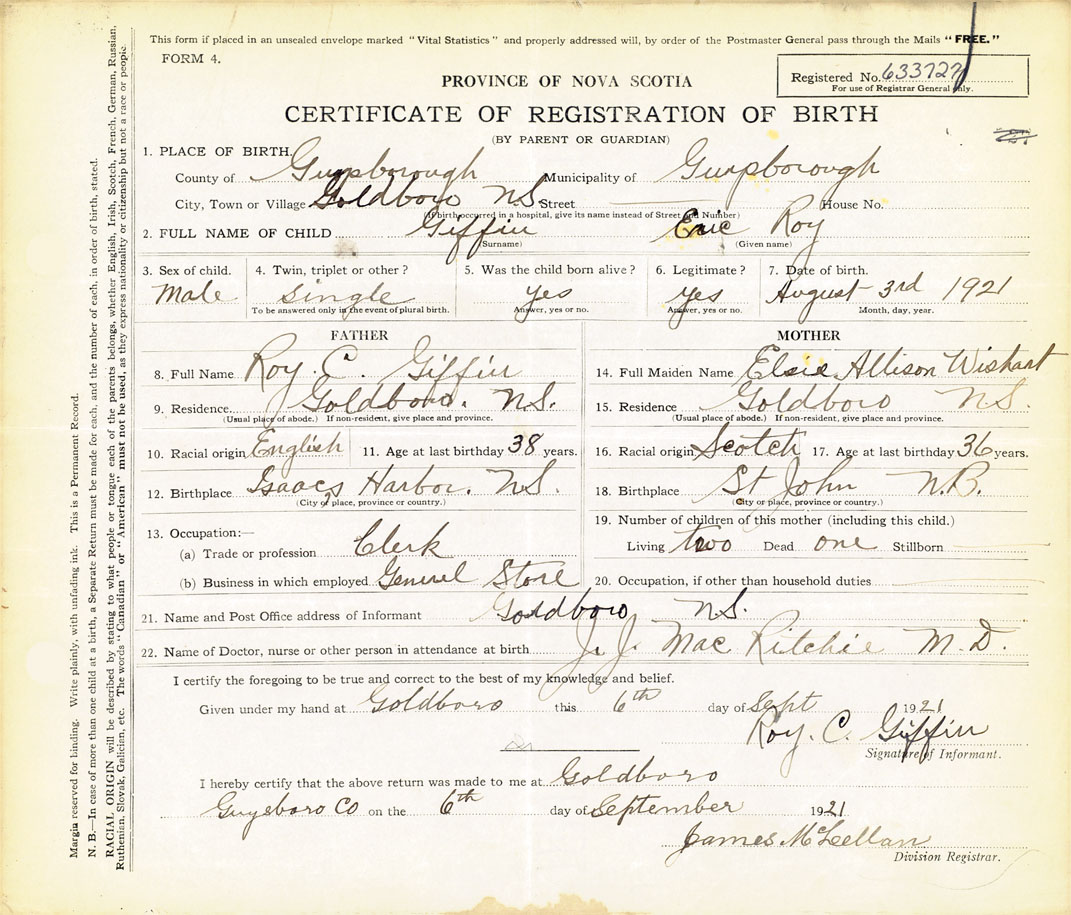 This form if placed in an unsealed envelope marked "Vital Statistics" and properly addressed will, by order of the Postmaster General pass through the Mails "FREE."
FORM 4.
Registered No. 633727
For use of Registrar General only.
PROVINCE OF NOVA SCOTIA
CERTIFICATE OF REGISTRATION OF BIRTH
(BY PARENT OR GUARDIAN)
1. PLACE OF BIRTH.
County of Guysborough Municipality of Guysborough
City, Town or Village Goldboro N.S. Street House No.
(If birth occurred in a hospital, give its name instead of Street and Number)
2. FULL NAME OF CHILD Giffin Eric Roy
(Surname) (Given name)
3. Sex of child. 4. Twin, triplet or other? 5. Was the child born alive? 6. Legitimate? 7. Date of birth.
Male single yes yes August 3rd 1921
To be answered only in the event of plural birth. Answer, yes or no. Answer, yes or no. Month, day, year.
FATHER
8. Full Name Roy C. Giffin
9. Residence Goldboro. N.S.
(Usual place of abode.) If non-resident, give place and province.
10. Racial origin English 11. Age at last birthday 38 years.
12. Birthplace Isaacs Harbor. N.S.
(City or place, province or country.)
13. Occupation:—
(a) Trade or profession Clerk
(b) Business in which employed General Store
MOTHER
14. Full Maiden Name Elsie Allison Wishart
15. Residence Goldboro N.S.
(Usual place of abode.) If non-resident, give place and province.
16. Racial origin Scotch 17. Age at last birthday 36 years.
18. Birthplace St John N.B.
(City or place, province or country.)
19. Number of children of this mother (including this child.)
Living two Dead one Stillborn
20. Occupation, if other than household duties
21. Name and Post Office address of Informant Goldboro N.S.
22. Name of Doctor, nurse or other person in attendance at birth J. J. Mac Ritchie M.D.
I certify the foregoing to be true and correct to the best of my knowledge and belief.
Given under my hand at Goldboro this 6th day of Sept 1921
Roy. C. Giffin
Signature of Informant.
I hereby certify that the above return was made to me at Goldboro
Guysboro Co on the 6th day of September 1921
James McLellan
Division Registrar.
Margin reserved for binding. Write plainly, with unfading ink. This is a Permanent Record.
N. B.—In case of more than one child at a birth, a Separate Return must be made for each, and the number of each, in order of birth, stated.
RACIAL ORIGIN will be described by stating to what people or tongue each of the parents belongs, whether English, Irish, Scotch, French, German, Russian,
Ruthenian, Slovak, Galician, etc. The words "Canadian" or "American" must not be used, as they express nationality or citizenship but not a race or people.